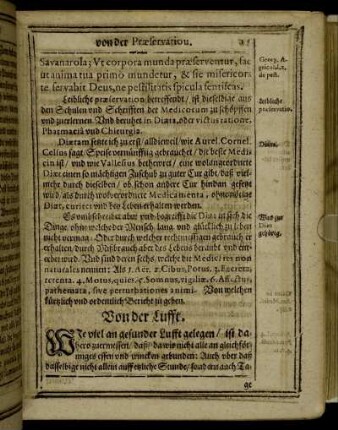 von der Præservation.
Savanarola; Vt corpora munda præserventur, fac
ut anima tua primò mundetur, & sic misericors
te servabit Deus, ne pestilitatis spicula sentiscas.
Leibliche præservation betreffendt / ist dieselbige aus
den Schulen und Schrifften der Medicorum zu schöpffen
und zuerlernen. Und beruhet in Diæta, oder victus ratione,
Pharmaciâ und Chirurgia.
Diætam setze ich zu erst / alldieweil / wie Aurel. Cornel.
Celsus sagt. Speise vernünfftig gebrauchet / die beste Medi-
cin ist / und wie Vallesius bethewret / eine wolangeordnete
Diæt einen so mächtigen Zuschub zu guter Cur gibt, daß viel-
mehr durch dieselben / ob schon andere Cur hindan gesetzt
wird, als durch wolverordnete Medicamenta, ohne mässige
Diæt, curiret und des Leben erhalten werden.
Es
Dinge ohne welche der Mensch lang und glücklich zu leben
nicht vermag. Oder durch welcher rechtmässigen gebrauch er
erhalten, durch Mißbrauch aber des Lebens beraubt und ent-
setzet wird. Und sind deren sechs, welche die Medici res non
naturales nennen: Als 1. Aër. 2. Cibus, Potus. 3. Excreta,
retenta. 4. Motus, quies. 5. Somnus, vigiliæ. 6. Aff.
pathemata, sive perturbationes animi. Von welchen
kürtzlich und ordentlich Bericht zu geben.
Von der Lufft.
Wie viel an gesunder Lufft gelegen / ist da-
hero zuermessen / daß / da wir nicht alle an gleichför-
miges essen und trincken gebunden: Auch ober daß
dasselbige nicht allein auff etzliche Stunde / sondern auch Ta-
ge
Leibliche
præservatio.
Diæta.
Was zur
Diæt
gehörig.